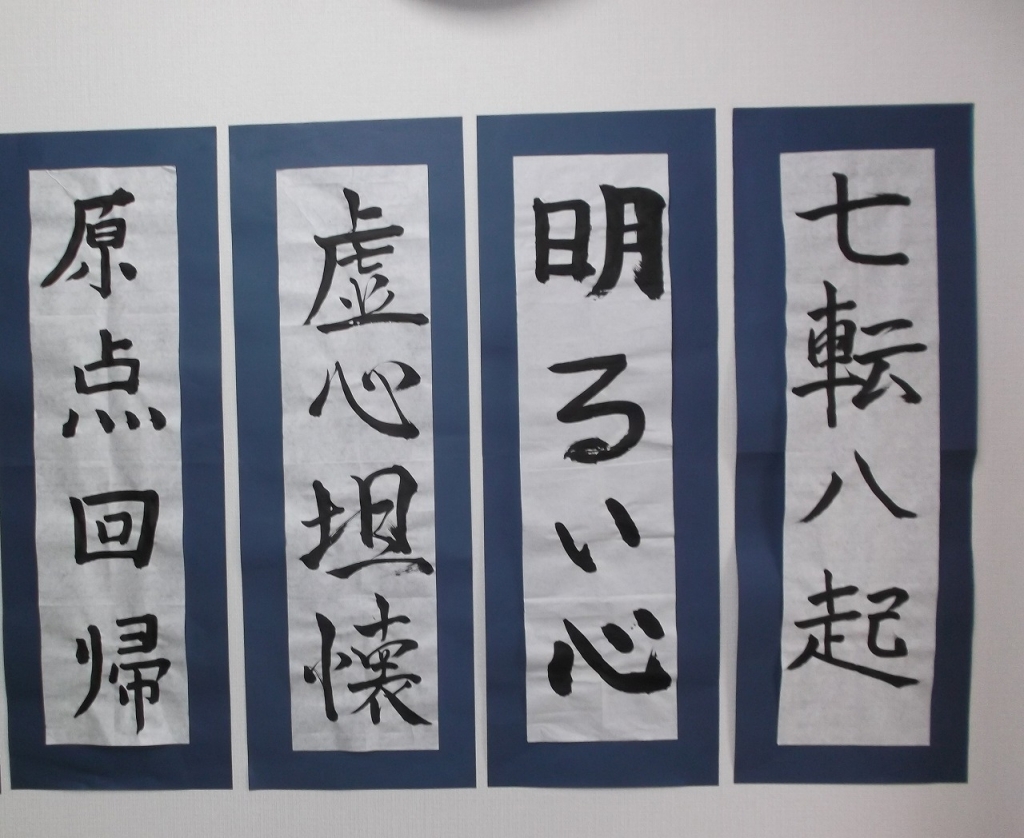 七転八起
明るい心
虚心坦懐
原点回帰